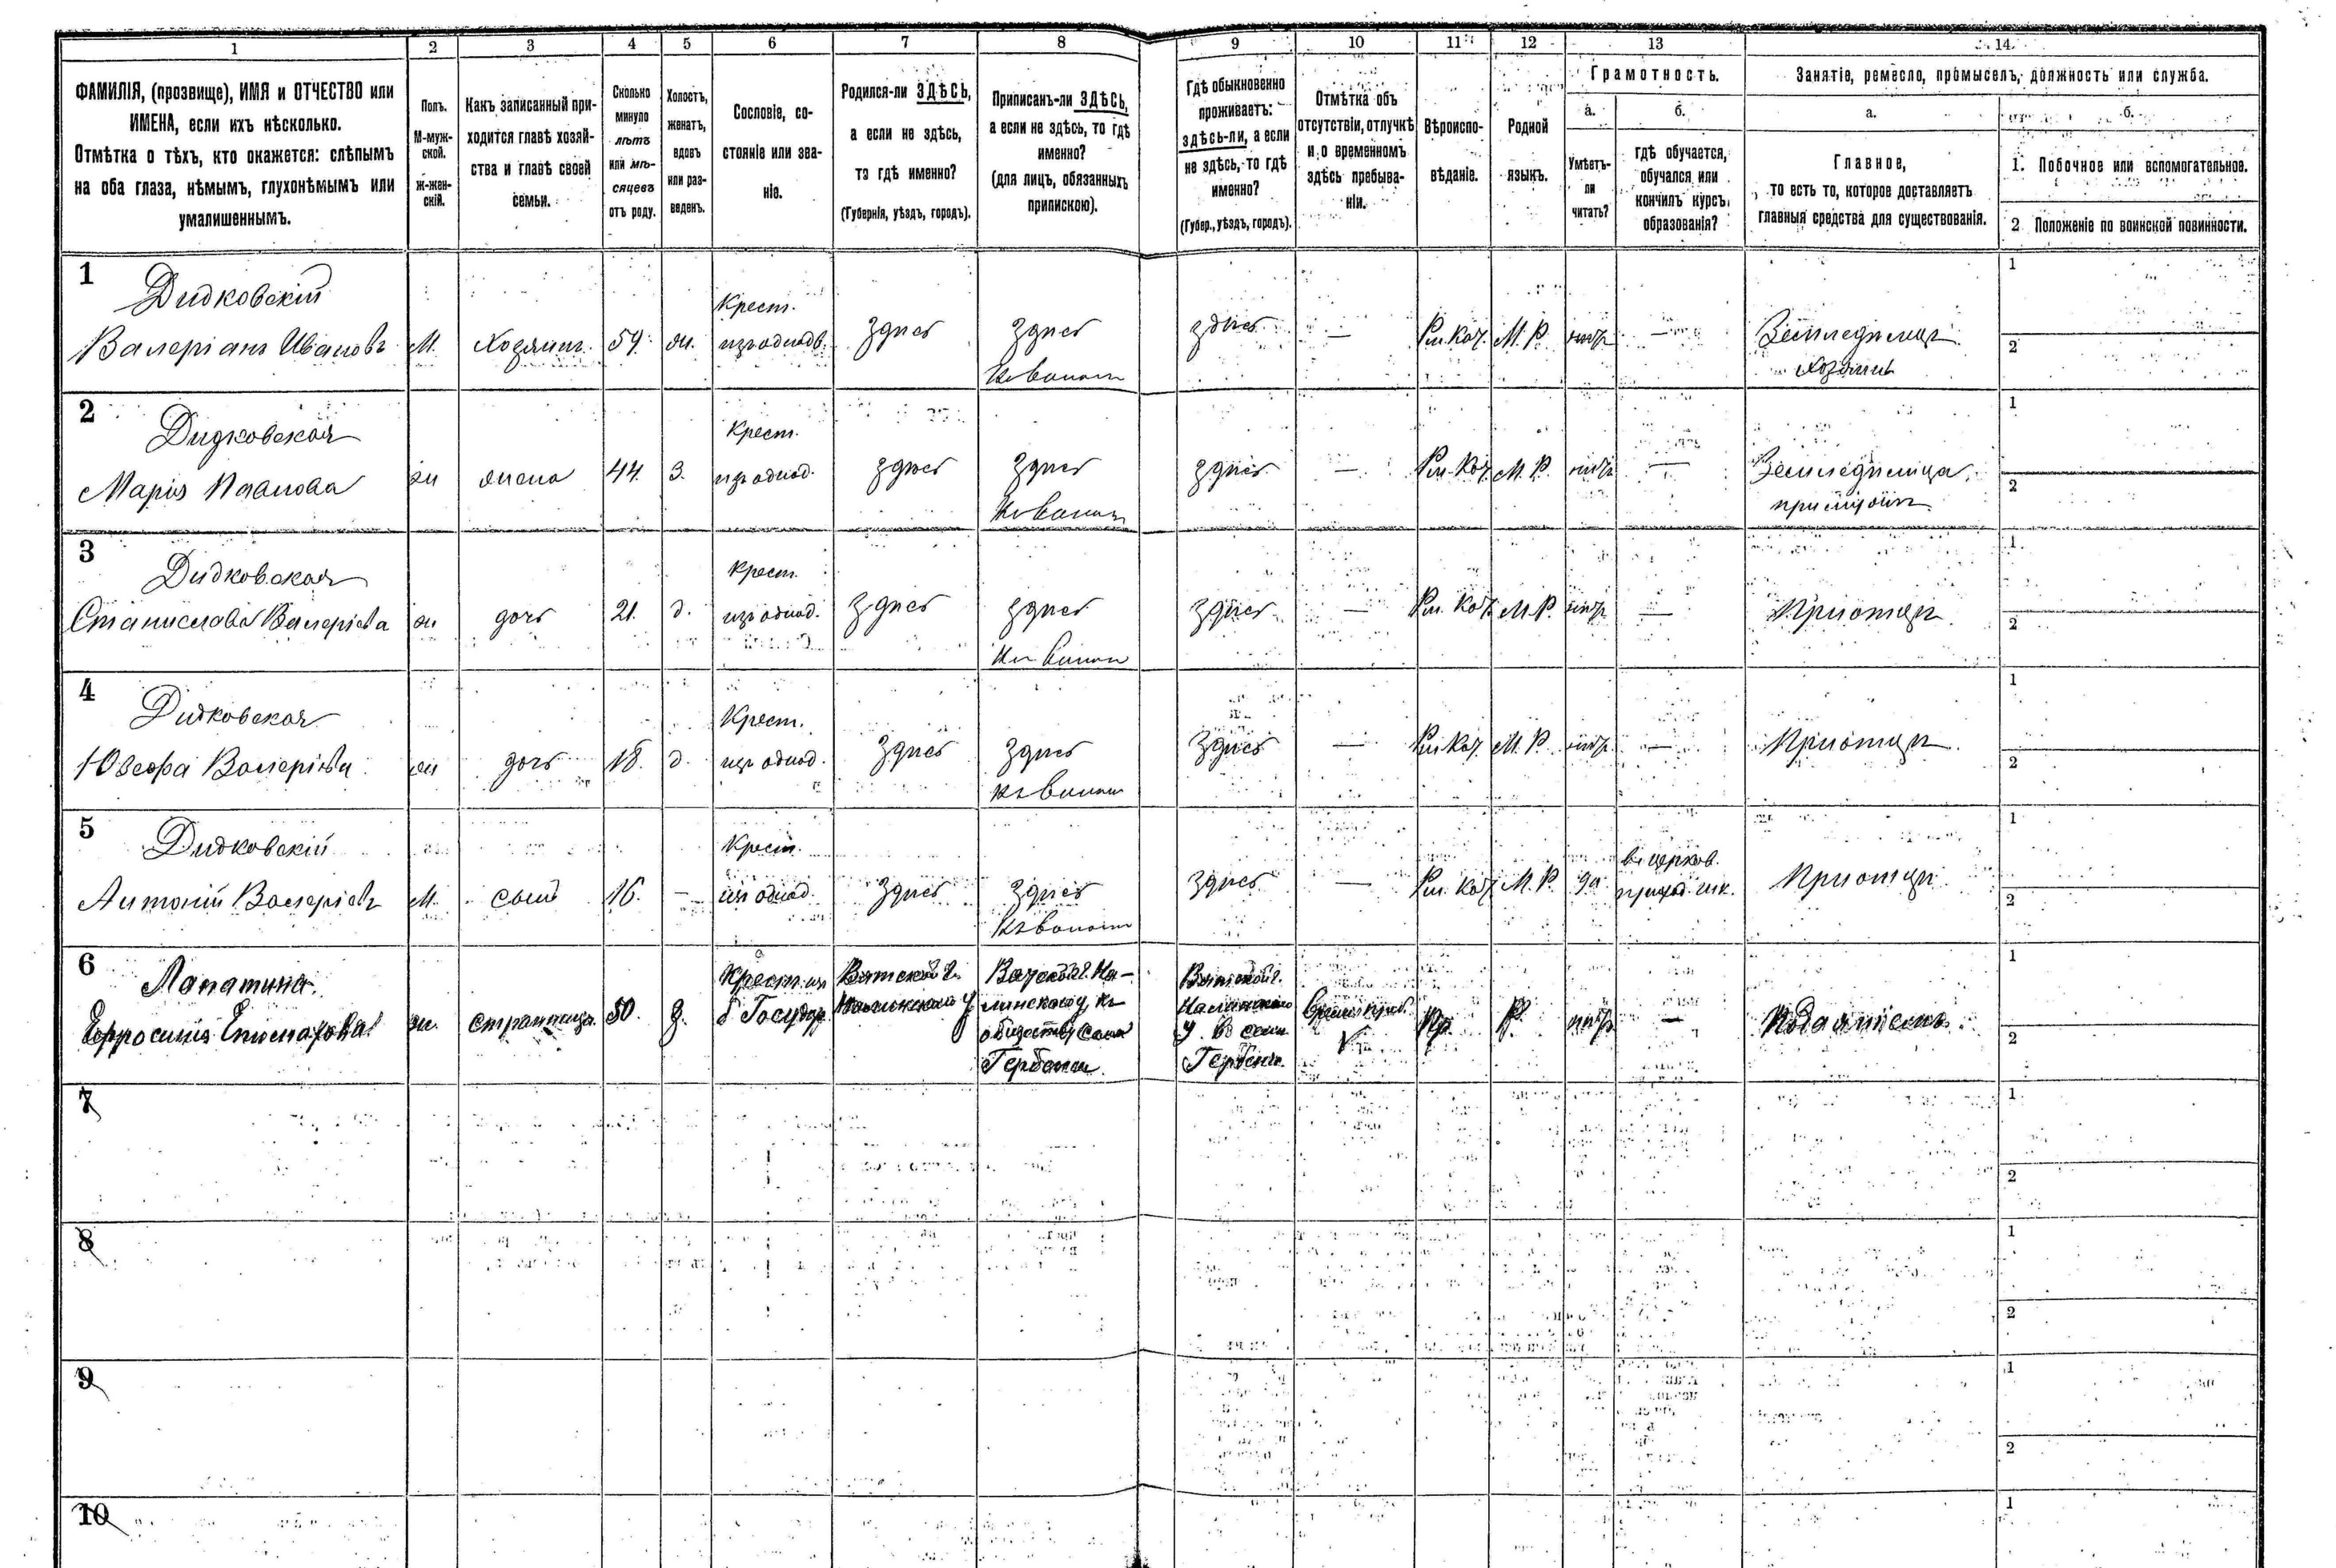 1 2 3 4 5 6 7 8 9 10 11 12 13 14
ФАМИЛІЯ, (прозвище), ИМЯ и ОТЧЕСТВО или
ИМЕНА, если ихъ нѣсколько.
Отмѣтка о тѣхъ, кто окажется: слѣпымъ
на оба глаза, нѣмымъ, глухонѣмымъ или
умалишеннымъ.
Полъ.
М-муж-
ской.
Ж-жен-
скій.
Какъ записанный при-
ходится главѣ хозяй-
ства и главѣ своей
семьи.
Сколько
минуло
лѣтъ
или мѣ-
сяцевъ
отъ роду.
Холостъ,
женатъ,
вдовъ
или раз-
веденъ.
Сословіе, со-
стояніе или зва-
ніе.
Родился-ли ЗДѢСЬ,
а если не здѣсь,
то гдѣ именно?
(Губернія, уѣздъ, городъ).
Приписанъ-ли ЗДѢСЬ,
а если не здѣсь, то гдѣ
именно?
(для лицъ, обязанныхъ
припискою).
Гдѣ обыкновенно
проживаетъ:
здѣсь-ли, а если
не здѣсь, то гдѣ
именно?
(Губер., уѣздъ, городъ).
Отмѣтка объ
отсутствіи, отлучкѣ
и о временномъ
здѣсь пребыва-
ніи.
Вѣроиспо-
вѣданіе.
Родной
языкъ.
Грамотность.
а.
Умѣетъ-
ли
читать?
б.
гдѣ обучается,
обучался или
кончилъ курсъ
образованія?
Занятіе, ремесло, промыселъ, должность или служба.
а.
Главное,
то есть то, которое доставляетъ
главныя средства для существованія.
б.
1. Побочное или вспомогательное.
2 Положеніе по воинской повинности.
1
Дидковскій
Валеріанъ Ивановъ
М.
Хозяинъ.
59.
ж.
Крест.
изъ однодв.
здѣсь
здѣсь
здѣсь
—
Рим. Кат.
М. Р.
нѣтъ
—
Земледѣлецъ
хозяинъ
1
2
2
Дидковская
Марія Павлова
ж
жена
44.
З.
Крест.
изъ однод.
здѣсь
здѣсь
здѣсь
—
Рим. Кат.
М. Р.
нѣтъ
—
Земледѣлица
1
2
3
Дидковская
Станислава Валеріева
ж
дочь
21.
д.
Крест.
изъ однод.
здѣсь
здѣсь
здѣсь
—
Рим. Кат.
М. Р.
нѣтъ
—
При отцѣ
1
2
4
Дидковская
Юзефа Валеріева
ж
дочь
18.
д.
Крест.
изъ однод.
здѣсь
здѣсь
здѣсь
—
Рим. Кат.
М. Р.
нѣтъ
—
При отцѣ
1
2
5
Дидковскій
Антоній Валеріевъ
М.
сынъ
16.
—
Крест.
изъ однод.
здѣсь
здѣсь
здѣсь
—
Рим. Кат.
М. Р.
да
въ церков.
приход. шк.
При отцѣ
1
2
6
Лапатина
Ефросинія
ж.
странница
50.
д.
Крест. изъ
б Госудор.
Вятской г.
Вятской г. Ма-
обществу села
Вятской г.
У. въ селѣ
Пр.
Р.
нѣтъ
—
Подаяніемъ.
1
2
7
1
2
8
1
2
9
1
2
10
1